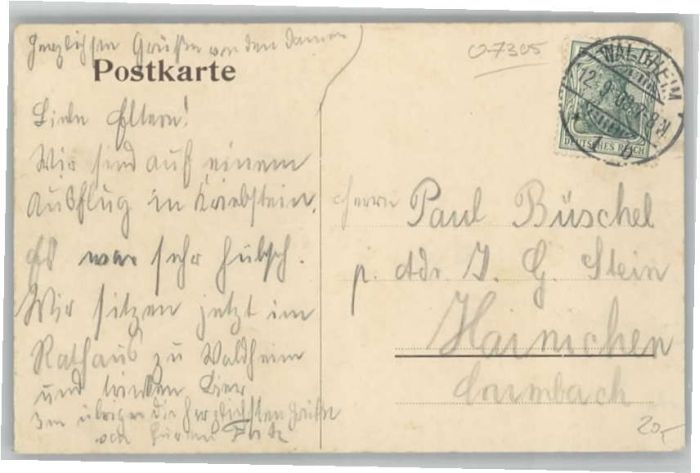 Herzlichste Grüße von den Damen
Postkarte
Liebe Eltern!
Wir sind auf einem
Ausflug in Kriebstein.
Es war sehr hübsch.
Wir sitzen jetzt im
Rathaus zu Waldheim
und trinken Bier
Im übrigen die herzlichsten Grüße
Fritz
O-7305
WALDHEIM
12.9.09
DEUTSCHES REICH
Herrn Paul Büschel
p. Adr. J. G. Stein
Hainichen
Crumbach
20,-